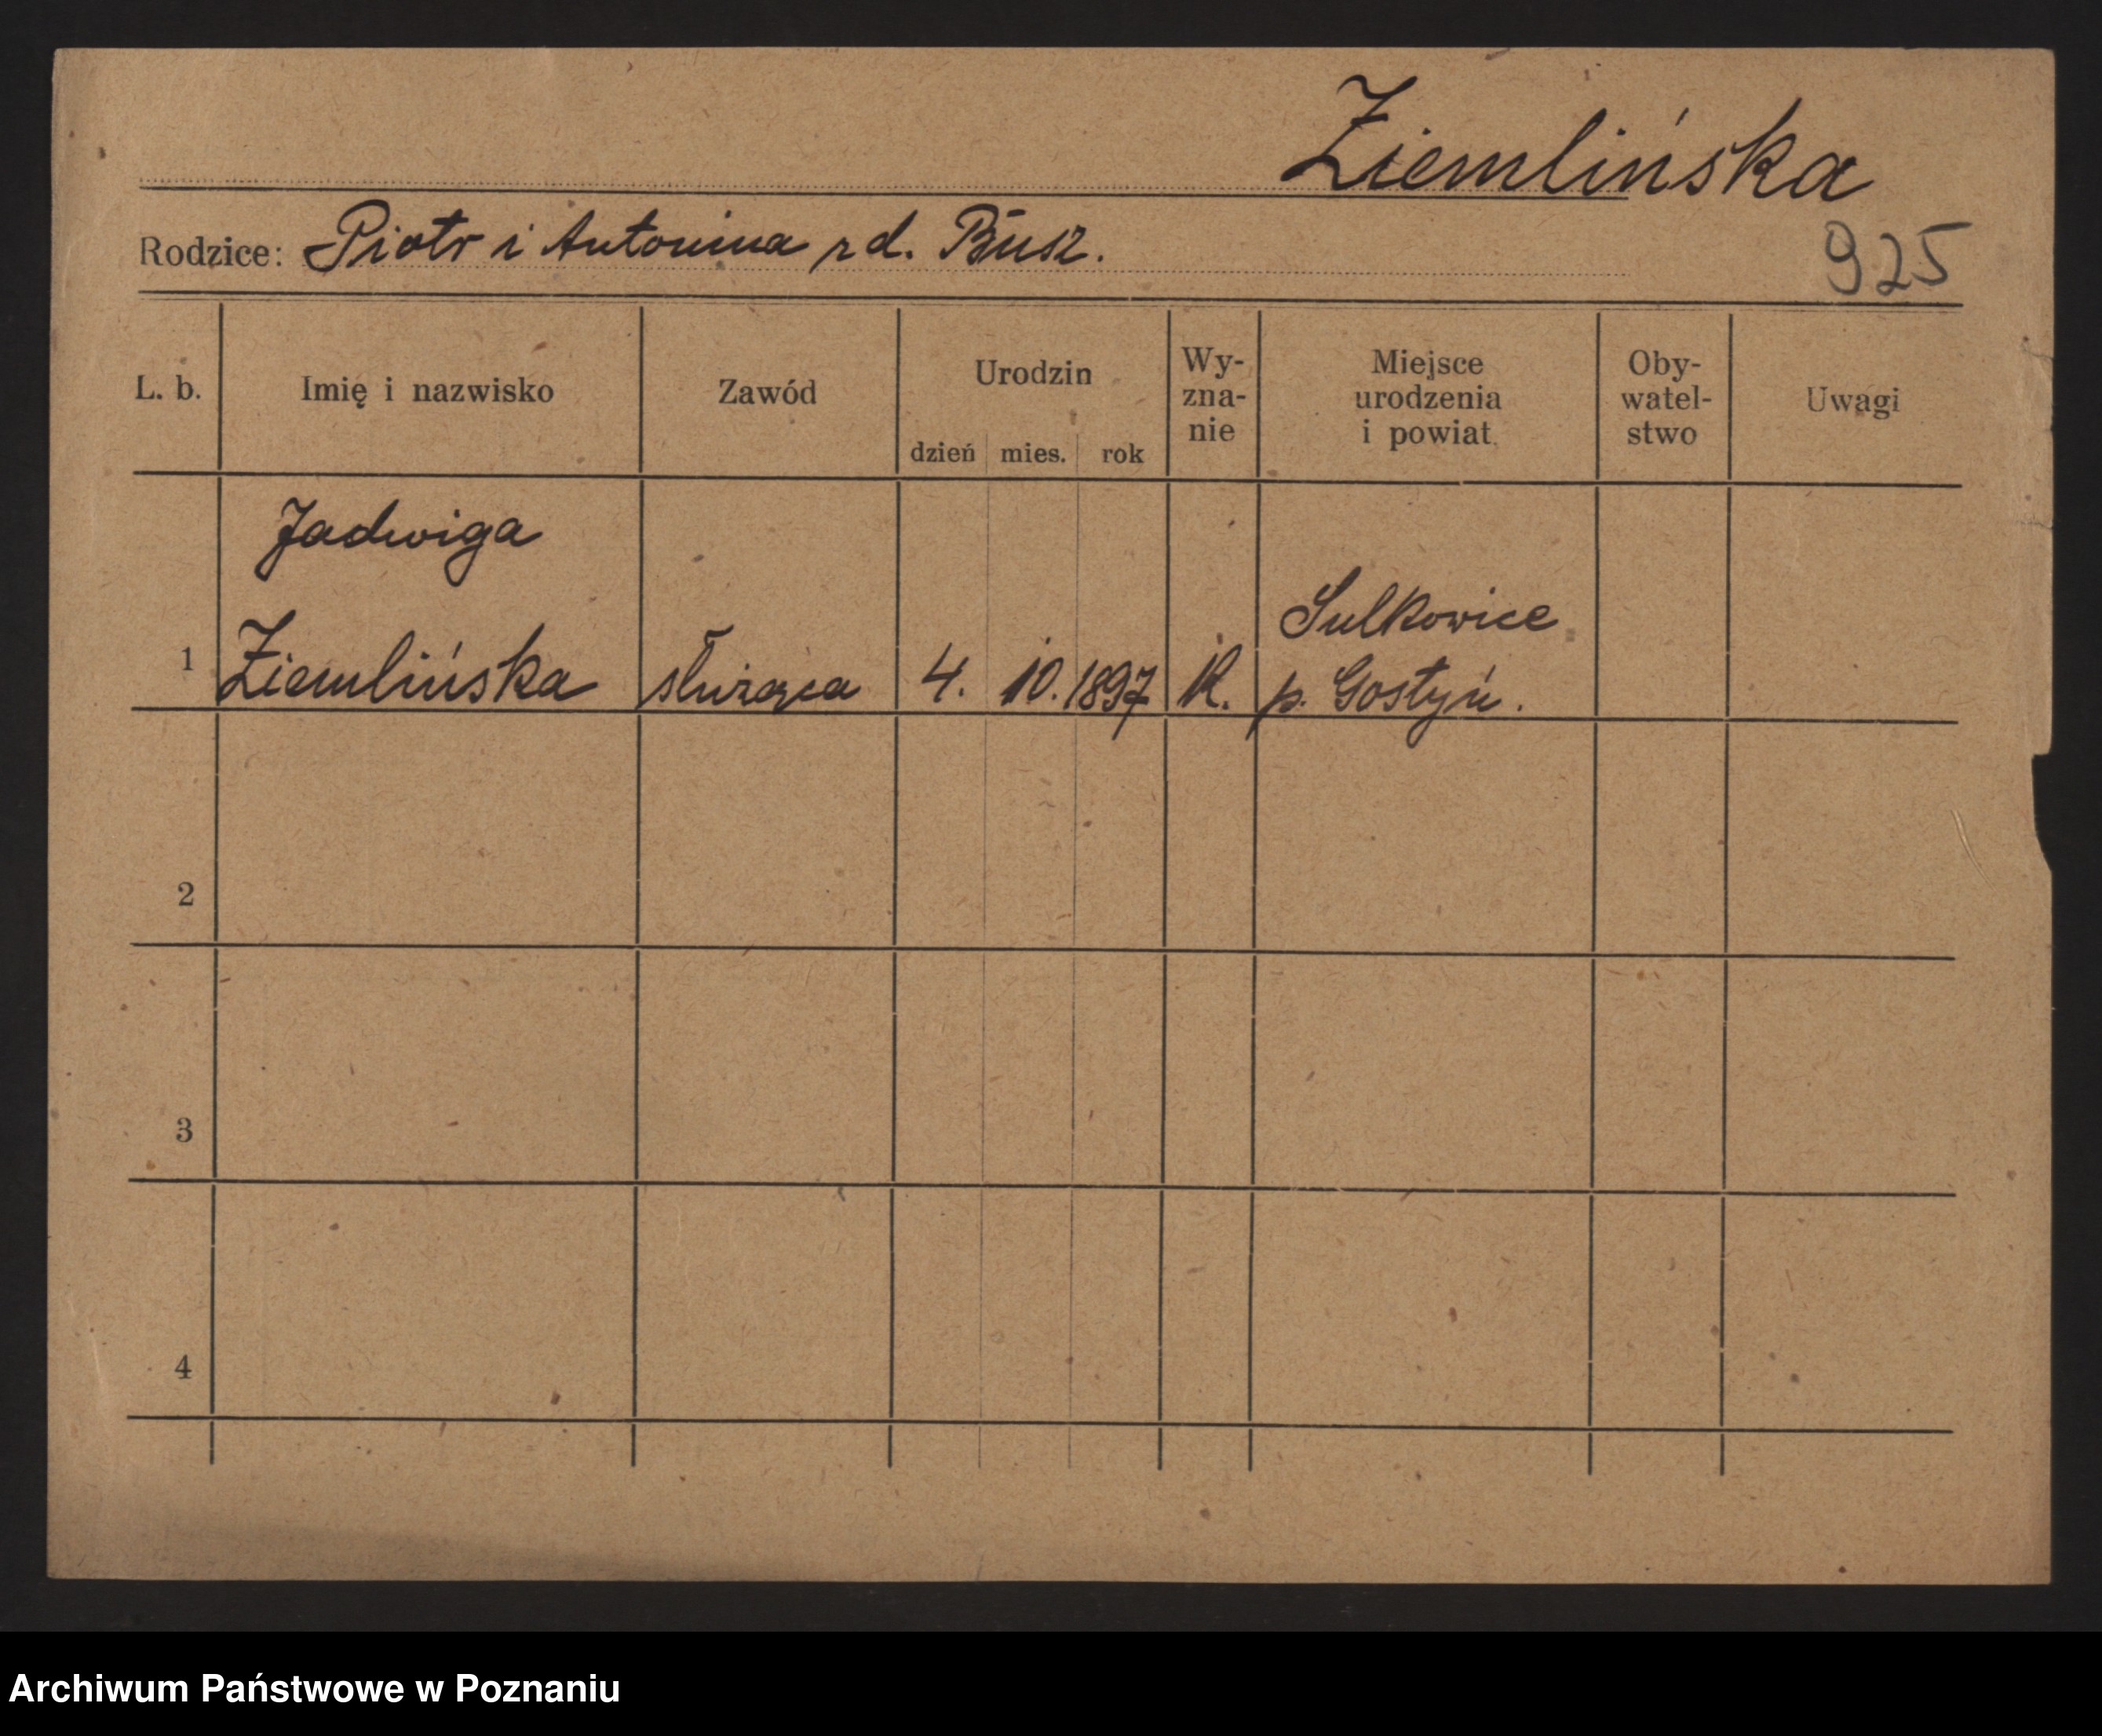 Ziemlińska
Rodzice: Piotr i Antonina rd. Busz.
925
L. b. Imię i nazwisko Zawód Urodzin Wy- Miejsce Oby- Uwagi
zna- urodzenia watel-
nie i powiat stwo
dzień mies. rok
Jadwiga
Sulkowice
1 Ziemlińska służąca 4. 10. 1897 K. p. Gostyń.
2
3
4
Archiwum Państwowe w Poznaniu